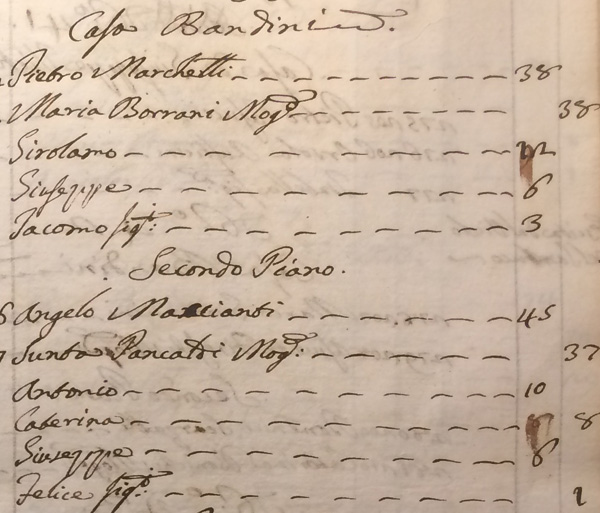 Casa Bandini.
Pietro Marchetti 38
Maria Borrani Mog.e 38
Girolamo
Giuseppe 6
Iacomo fig.i: 3
Secondo Piano.
Angelo Marcianti 45
Sunta Pancatri Mog.: 37
Antonio 10
Caterina 8
Giuseppe 6
Felice fig.i: 1